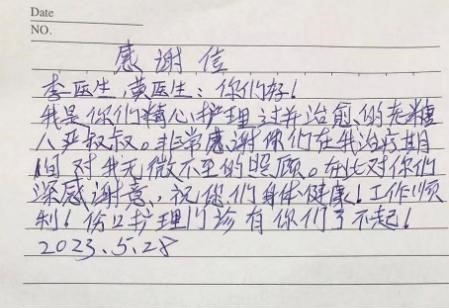 Date
NO.
感谢信
李医生,黄医生:你们好!
我是你们精心护理过并治愈的老糖
人严叔叔。非常感谢你们在我治疗期
间对我无微不至的照顾。在此对你们
深感谢意,祝你们身体健康!工作顺
利!伤口护理门诊有你们了不起!
2023.5.28